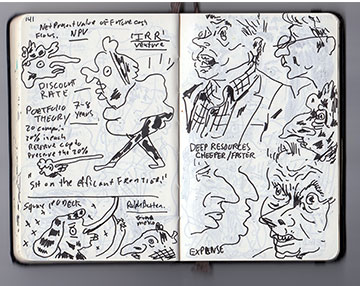 141
Net Present Value of Future cash
Flows. NPV
"IRR"
Venture
DISCOUNT
RATE
PORTFOLIO 7-8
THEORY years
20 compani
20% in each
Reserve cap to
preserve the 20%
"Sit on the efficient FRONTIER!"
Square IPO DECK
DEEP RESOURCES
CHEEPER/FASTER
EXPENSE